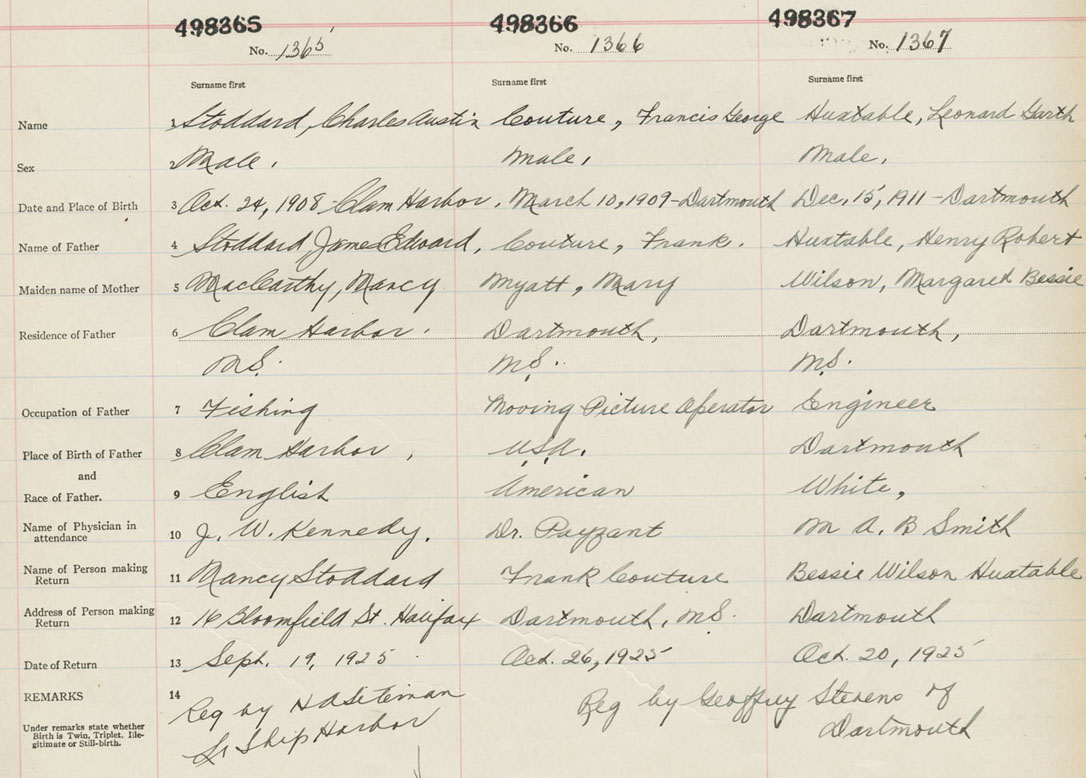 498365 498366 498367
No. 1365 No. 1366 No. 1367
Surname first Surname first Surname first
Name 1 Stoddard, Charles Austin Couture, Francis George Huxtable, Leonard Garth
Sex 2 Male. Male, Male.
Date and Place of Birth 3 Oct. 24, 1908 Clam Harbor. March 10, 1909-Dartmouth Dec. 15, 1911-Dartmouth
Name of Father 4 Stoddard James Edward, Couture, Frank. Huxtable, Henry Robert
Maiden name of Mother 5 MacCarthy, Nancy Myatt, Mary Wilson, Margaret Bessie
Residence of Father 6 Clam Harbor. Dartmouth, Dartmouth,
N.S. N.S. N.S.
Occupation of Father 7 Fishing Moving Picture Operator Engineer
Place of Birth of Father 8 Clam Harbor, U.S.A. Dartmouth
and
Race of Father. 9 English American White,
Name of Physician in
attendance 10 J. W. Kennedy. Dr. Payzant M A. B Smith
Name of Person making
Return 11 Nancy Stoddard Frank Couture Bessie Wilson Huxtable
Address of Person making
Return 12 16 Bloomfield St. Halifax Dartmouth, N.S. Dartmouth
Date of Return 13 Sept. 19, 1925 Oct. 26, 1925 Oct. 20, 1925
REMARKS 14 Reg by Reg by Geoffrey Stevens of
Under remarks state whether
Birth is Twin, Triplet, Ille-
gitimate or Still-birth.
Ship Harbor Dartmouth